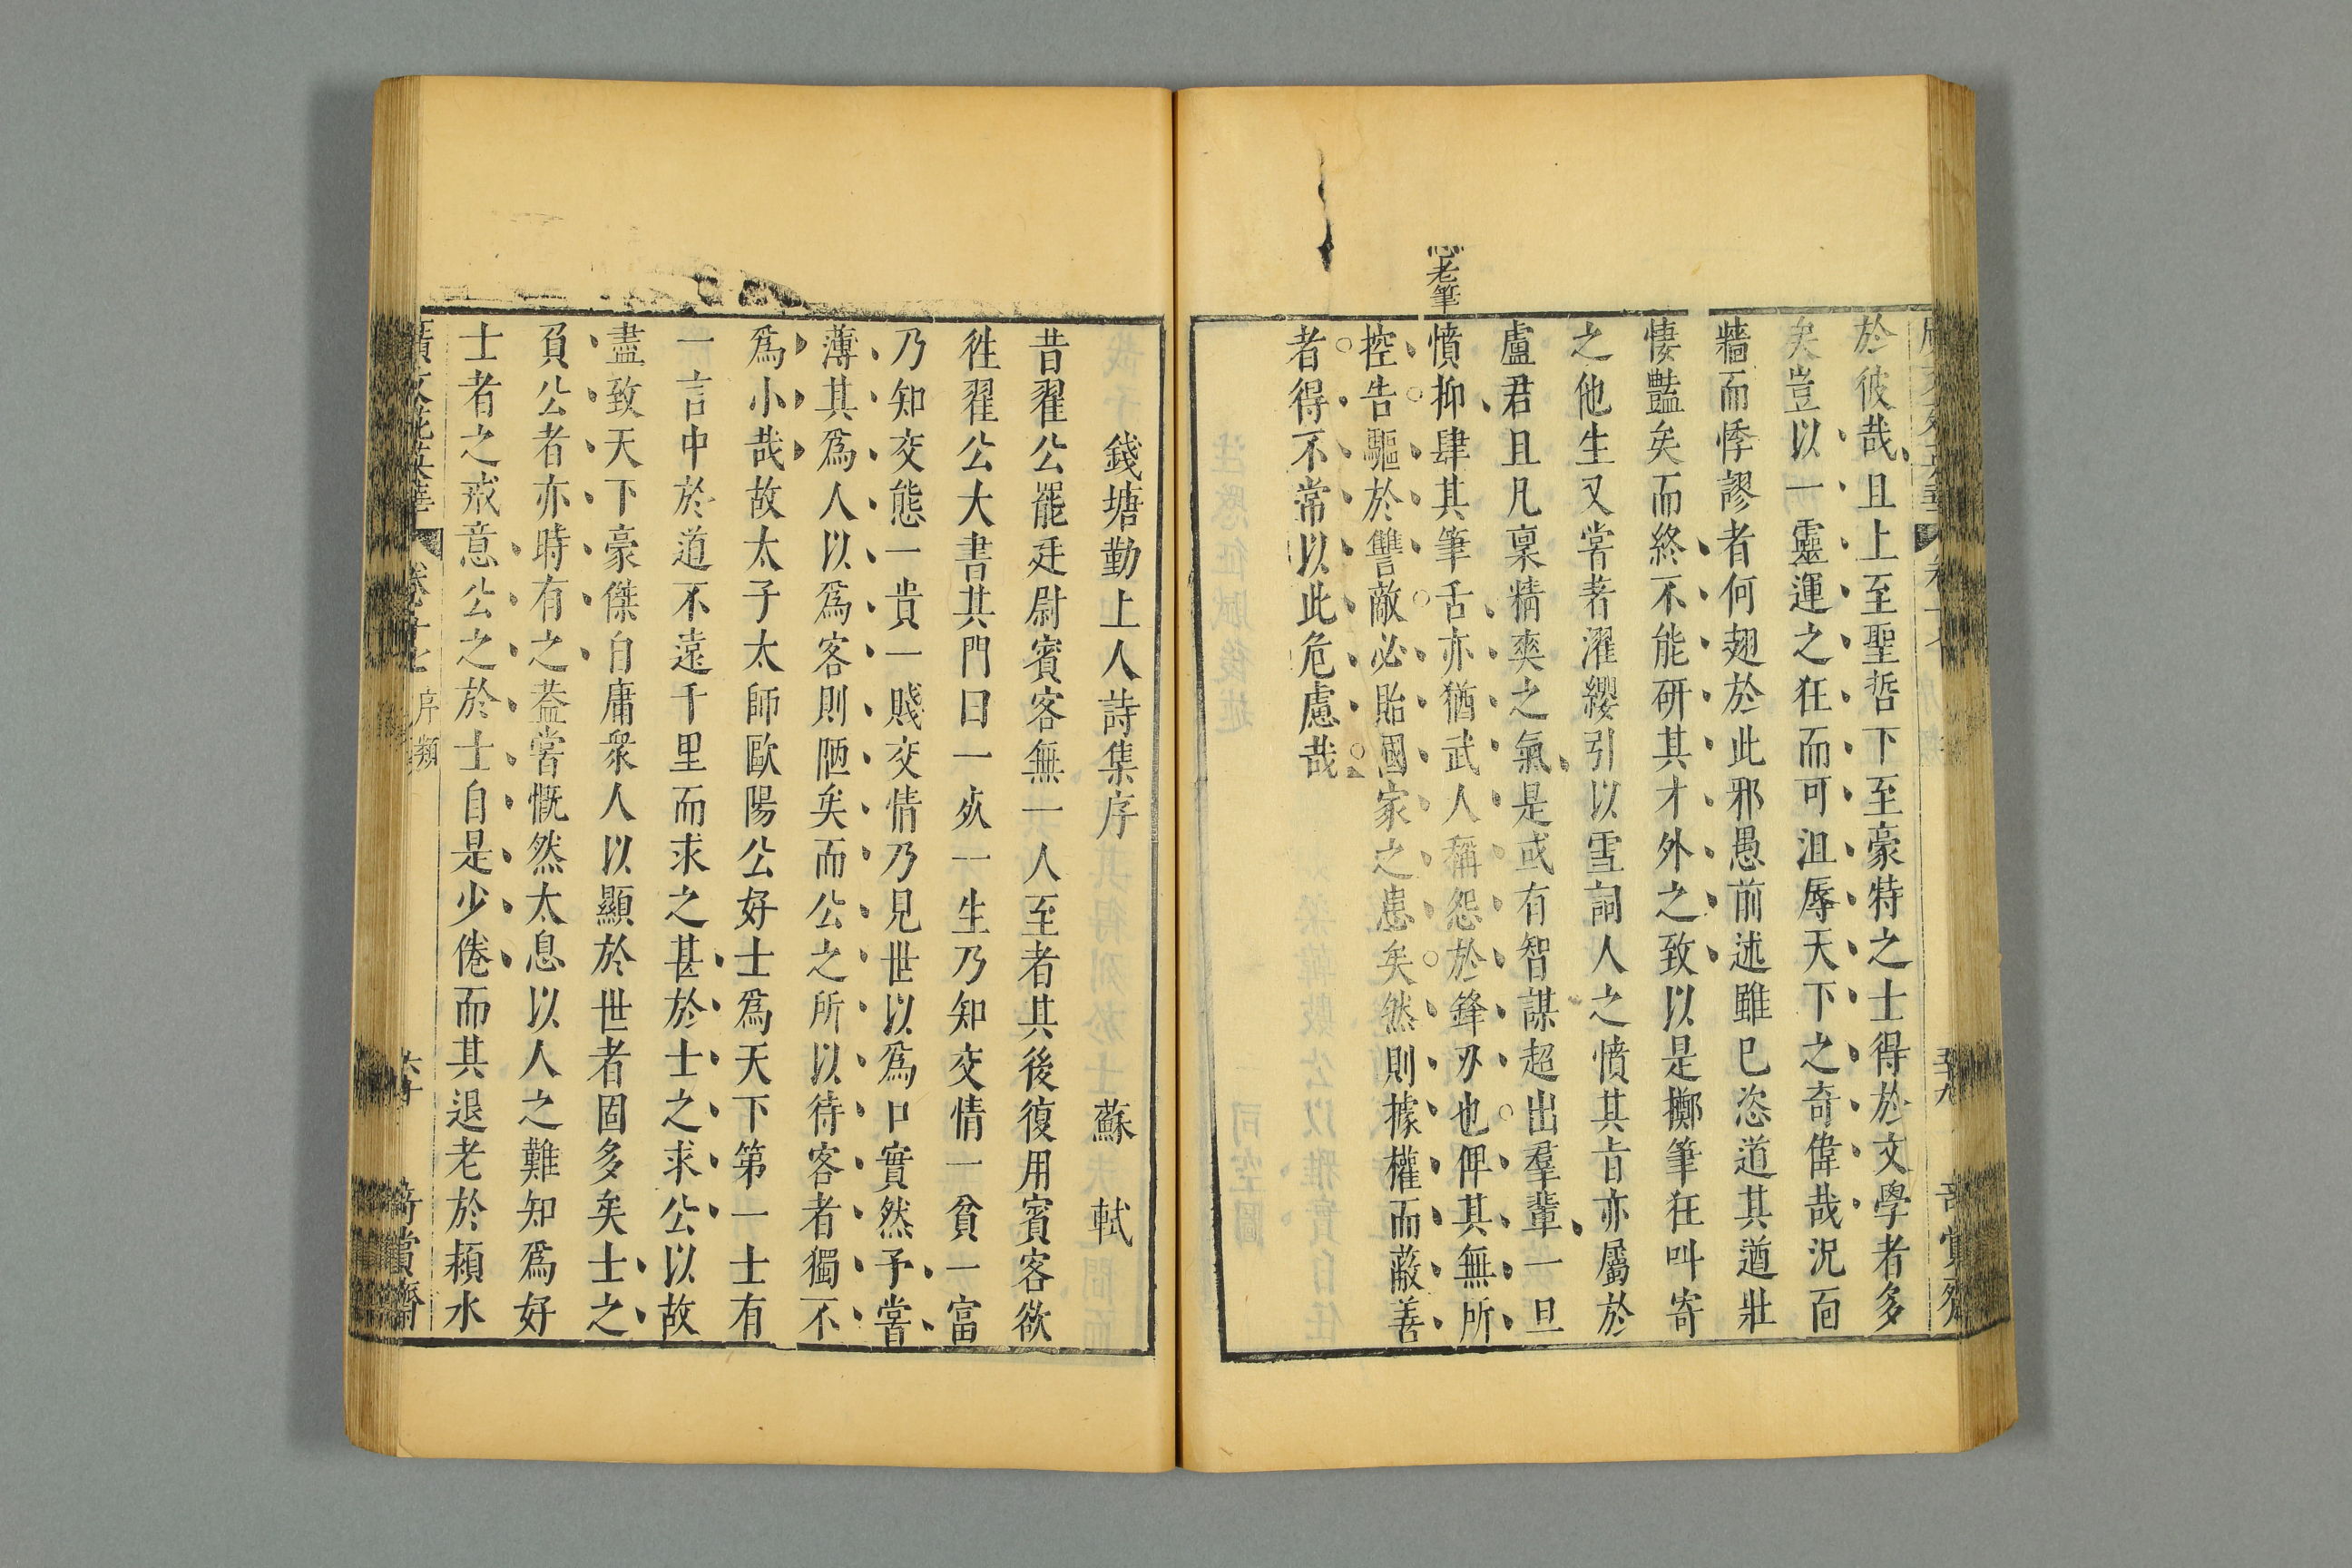 老筆
於彼哉且上至聖哲下至豪特之士得於文學者多
矣豈以一靈運之狂而可沮辱天下之奇偉哉況面
牆而悸謬者何翅於此邪愚前述雖已恣道其遒壯
悽豔矣而終不能研其才外之致以是擲筆狂叫寄
之他生又嘗著濯纓引以雪詞人之憤其旨亦屬於
盧君且凡稟精爽之氣是或有智謀超出羣輩一旦
憤抑肆其筆舌亦猶武人稱怨於鋒刃也俾其無所
控告驅於讐敵必貽國家之患矣然則據權而蔽善
者得不常以此危慮哉
錢塘勤上人詩集序 蘇軾
昔翟公罷廷尉賓客無一人至者其後復用賓客欲
徃翟公大書其門曰一死一生乃知交情一貧一富
乃知交態一貴一賤交情乃見世以爲口實然予嘗
薄其爲人以爲客則陋矣而公之所以待客者獨不
爲小哉故太子太師歐陽公好士爲天下第一士有
一言中於道不遠千里而求之甚於士之求公以故
盡致天下豪傑自庸衆人以顯於世者固多矣士之
負公者亦時有之葢嘗慨然太息以人之難知爲好
士者之戒意公之於士自是少倦而其退老於潁水
廣文苑英華 卷十七 序類 六十 奇賞齋